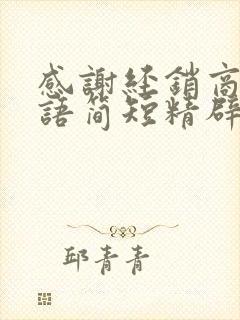 感謝經銷商
語簡短精辟
邱青青